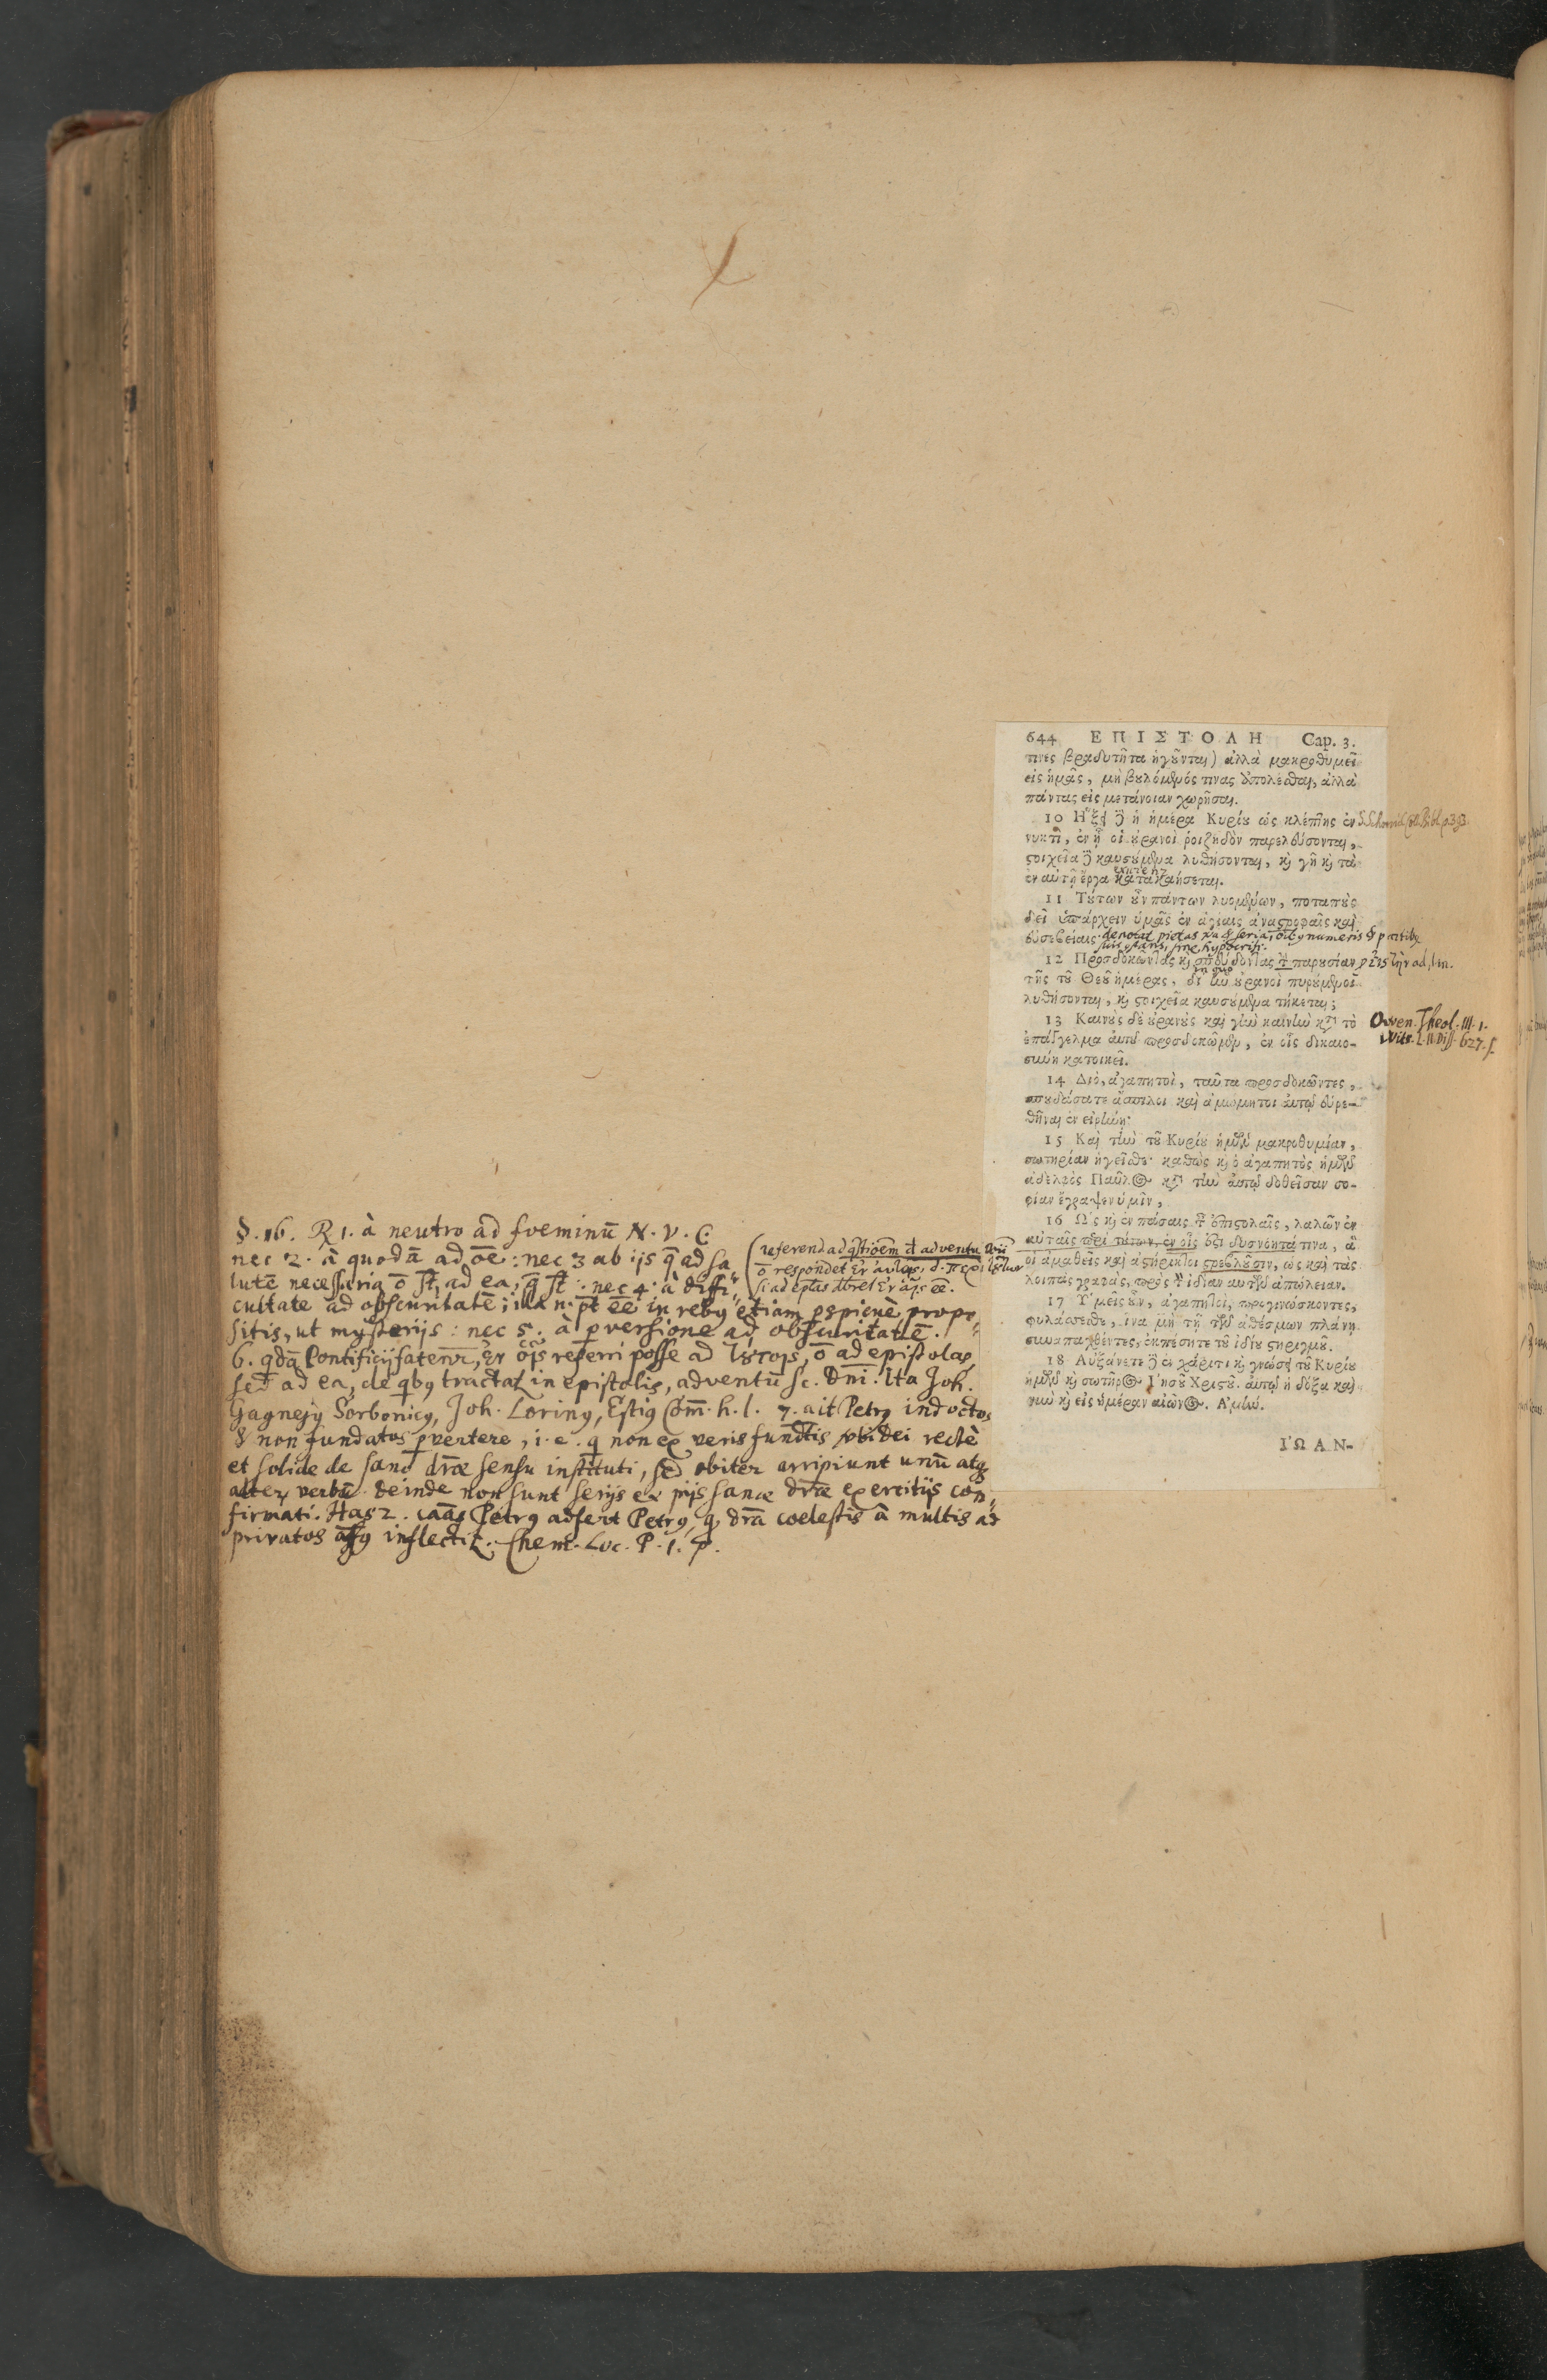 644 ΕΠΙΣΤΟΛΗ Cap. 3.
τινες βραδυτῆτα ἡγοῦνται) ἀλλὰ μακροθυμεῖ
εἰς ἡμᾶς, μὴ βουλόμενός τινας ἀπολέσθαι, ἀλλὰ
πάντας εἰς μετάνοιαν χωρῆσαι.
10 Ἥξει δὲ ἡ ἡμέρα Κυρίου ὡς κλέπτης ἐν
νυκτὶ, ἐν ᾗ οἱ οὐρανοὶ ῥοιζηδὸν παρελεύσονται,
στοιχεῖα δὲ καυσούμενα λυθήσονται, καὶ γῆ καὶ τὰ
ἐν αὐτῇ ἔργα κατακαήσεται.
11 Τούτων οὖν πάντων λυομένων, ποταποὺς
δεῖ ὑπάρχειν ὑμᾶς ἐν ἁγίαις ἀναστροφαῖς καὶ
εὐσεβείαις·
denotat pietas
12 Προσδοκῶντας καὶ σπεύδοντας τὴν παρουσίαν
τῆς τοῦ Θεοῦ ἡμέρας, δι' ἣν οὐρανοὶ πυρούμενοι
λυθήσονται, καὶ στοιχεῖα καυσούμενα τήκεται;
13 Καινοὺς δὲ οὐρανοὺς καὶ γῆν καινὴν κατὰ τὸ
ἐπάγγελμα αὐτοῦ προσδοκῶμεν, ἐν οἷς δικαιο-
σύνη κατοικεῖ.
Owen. Theol. III. 1.
Vitr. L. II. Diss. 627. f.
14 Διὸ, ἀγαπητοὶ, ταῦτα προσδοκῶντες,
σπουδάσατε ἄσπιλοι καὶ ἀμώμητοι αὐτῷ εὑρε-
θῆναι ἐν εἰρήνῃ·
15 Καὶ τὴν τοῦ Κυρίου ἡμῶν μακροθυμίαν,
σωτηρίαν ἡγεῖσθε· καθὼς καὶ ὁ ἀγαπητὸς ἡμῶν
ἀδελφὸς Παῦλος κατὰ τὴν αὐτῷ δοθεῖσαν σο-
φίαν ἔγραψεν ὑμῖν,
16 Ὡς καὶ ἐν πάσαις ταῖς ἐπιστολαῖς, λαλῶν ἐν
αὐταῖς περὶ τούτων, ἐν οἷς ἐστὶ δυσνόητά τινα, ἃ
οἱ ἀμαθεῖς καὶ ἀστήρικτοι στρεβλοῦσιν, ὡς καὶ τὰς
λοιπὰς γραφὰς, πρὸς τὴν ἰδίαν αὐτῶν ἀπώλειαν.
17 Ὑμεῖς οὖν, ἀγαπητοὶ, προγινώσκοντες,
φυλάσσεσθε, ἵνα μὴ τῇ τῶν ἀθέσμων πλάνῃ
συναπαχθέντες, ἐκπέσητε τοῦ ἰδίου στηριγμοῦ.
18 Αὐξάνετε δὲ ἐν χάριτι καὶ γνώσει τοῦ Κυρίου
ἡμῶν καὶ σωτῆρος Ἰησοῦ Χριστοῦ. αὐτῷ ἡ δόξα καὶ
νῦν καὶ εἰς ἡμέραν αἰῶνος. Ἀμήν.
ἸΩΑΝ-
§. 16. R 1. à neutro ad foeminū N. V. C
nec 2. à quodā ad oē: nec 3 ab ijs q̄ ad sa
lutē necessaria ō st, ad ea, q̄ st: nec 4. à diffi
cultate ad obscuritatē; illa n. pt ēē in rebꝰ etiam pspicuè propo
sitis, ut mysterijs: nec 5. à pversione ad obscuritatē.
6. qdā Pontificij fatenr, ἐν οἷς referri posse ad τούτοις, ō ad epistolas
sed ad ea, de qbꝰ tractat in epistolis, adventū sc. Dni. Ita Joh.
Gagnejꝰ Sorbonicꝰ, Joh. Lorinꝰ, Estiꝰ Com̄. h. l. 7. ait Petrꝰ indoctos
& non fundatos pvertere, i. e. q non ex veris fundtis vbi dei rectè
et solide de sano dræ sensu instituti, sed obiter arripiunt unū atq
alter verbū. deinde non sunt serijs ex pijs sanæ dræ exercitijs con
firmati. Has 2. caās Petrꝰ adfert Petrꝰ, q, drā coelestis à multis ad
privatos inflectit. Chem. Loc. P. 1. p.